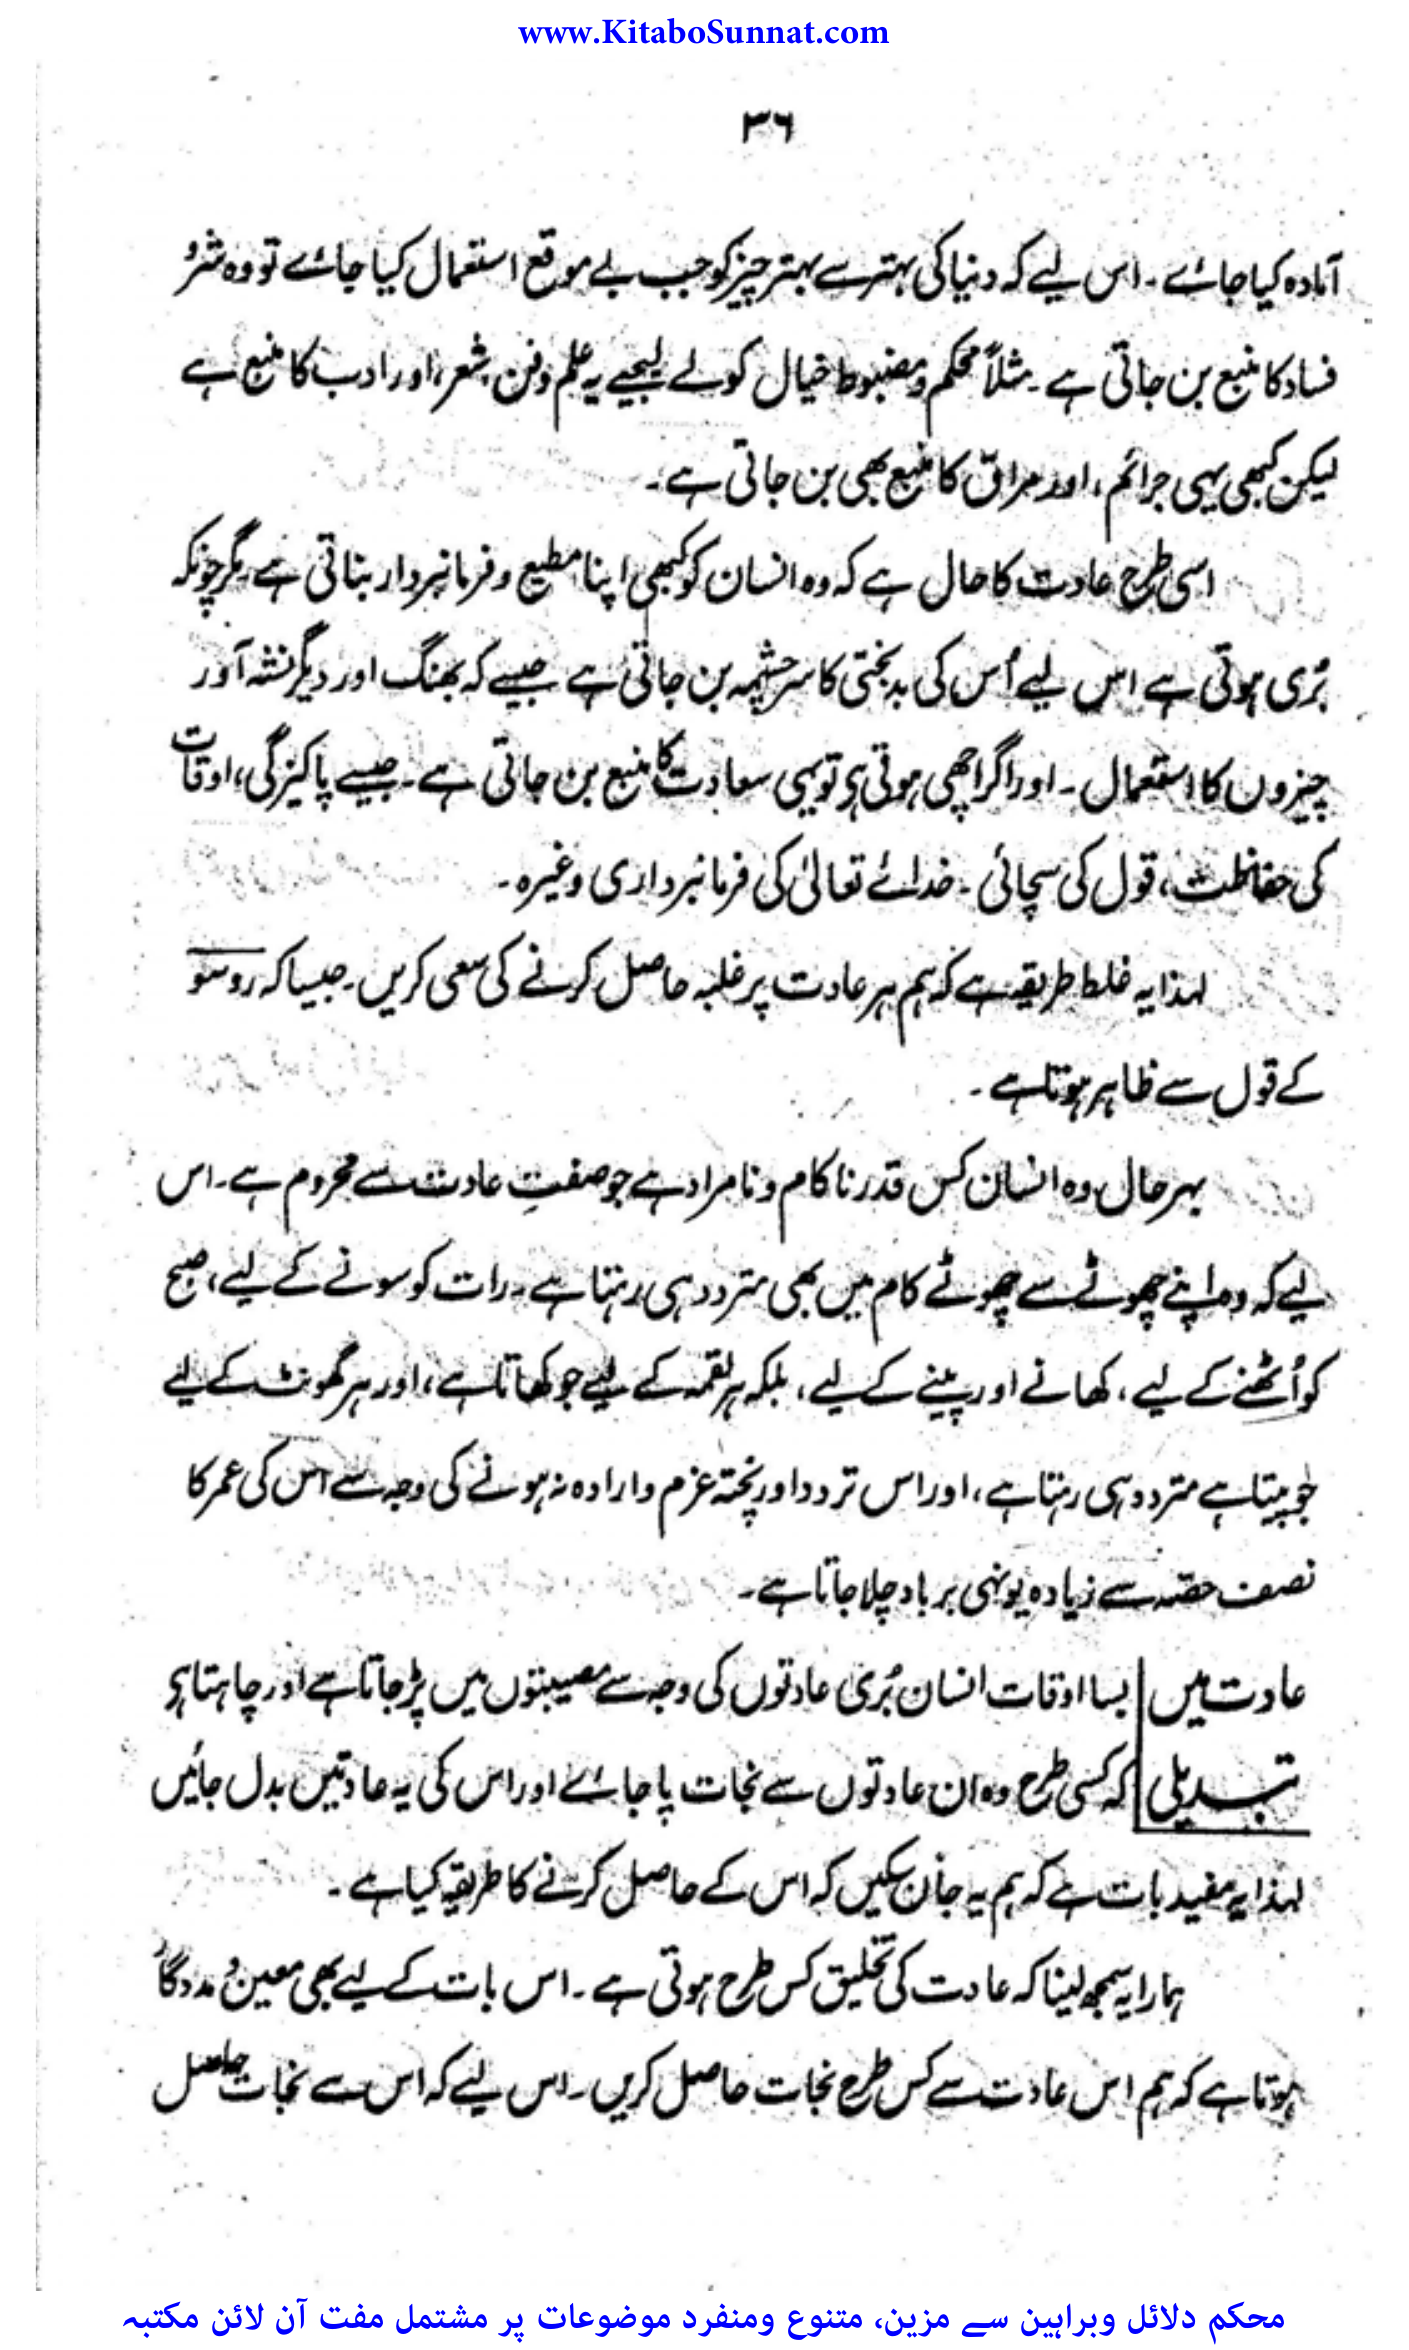 www.KitaboSunnat.com
۳۶
آمادہ کیا جائے۔ اس لیے کہ دنیا کی بہتر سے بہتر چیز کو جب بے موقع استعمال کیا جائے تو وہ شر و
فساد کا منبع بن جاتی ہے۔ مثلاً محکم و مضبوط خیال کو لے لیجیے یہ علم و فن، شعر، اور ادب کا منبع ہے
لیکن کبھی یہی جرائم، اور مراق کا منبع بھی بن جاتی ہے۔
اسی طرح عادت کا حال ہے کہ وہ انسان کو کبھی اپنا مطیع و فرمانبردار بناتی ہے، مگر چونکہ
بُری ہوتی ہے اس لیے اُس کی بدبختی کا سرچشمہ بن جاتی ہے جیسے کہ بھنگ اور دیگر نشہ آور
چیزوں کا استعمال۔ اور اگر اچھی ہوتی ہی تو یہی سعادت کا منبع بن جاتی ہے۔ جیسے پاکیزگی، اوقات
کی حفاظت، قول کی سچائی۔ خدائے تعالیٰ کی فرمانبرداری وغیرہ۔
لہذا یہ غلط طریقہ ہے کہ ہم ہر عادت پر غلبہ حاصل کرنے کی سعی کریں۔ جیسا کہ روسو
کے قول سے ظاہر ہوتا ہے۔
بہر حال وہ انسان کس قدر ناکام و نامراد ہے جو صفتِ عادت سے محروم ہے۔ اس
لیے کہ وہ اپنے چھوٹے سے چھوٹے کام میں بھی متردد ہی رہتا ہے۔ رات کو سونے کے لیے، صبح
کو اُٹھنے کے لیے، کھانے اور پینے کے لیے، بلکہ ہر لقمہ کے لیے جو کھاتا ہے، اور ہر گھونٹ کے لیے
جو پیتا ہے متردد ہی رہتا ہے، اور اس تردد اور پختہ عزم و ارادہ نہ ہونے کی وجہ سے اس کی عمر کا
نصف حصہ سے زیادہ یونہی برباد چلا جاتا ہے۔
عادت میں بسا اوقات انسان بُری عادتوں کی وجہ سے مصیبتوں میں پڑ جاتا ہے اور چاہتا ہی
تبدیلی کہ کسی طرح وہ ان عادتوں سے نجات پا جائے اور اس کی یہ عادتیں بدل جائیں
لہذا یہ مفید بات ہے کہ ہم یہ جان سکیں کہ اس کے حاصل کرنے کا طریقہ کیا ہے۔
ہمارا یہ سمجھ لینا کہ عادت کی تخلیق کس طرح ہوتی ہے۔ اس بات کے لیے بھی معین و مددگار
ہوتا ہے کہ ہم اس عادت سے کس طرح نجات حاصل کریں۔ اس لیے کہ اس سے نجات حاصل
محکم دلائل وبراہین سے مزین، متنوع ومنفرد موضوعات پر مشتمل مفت آن لائن مکتبہ